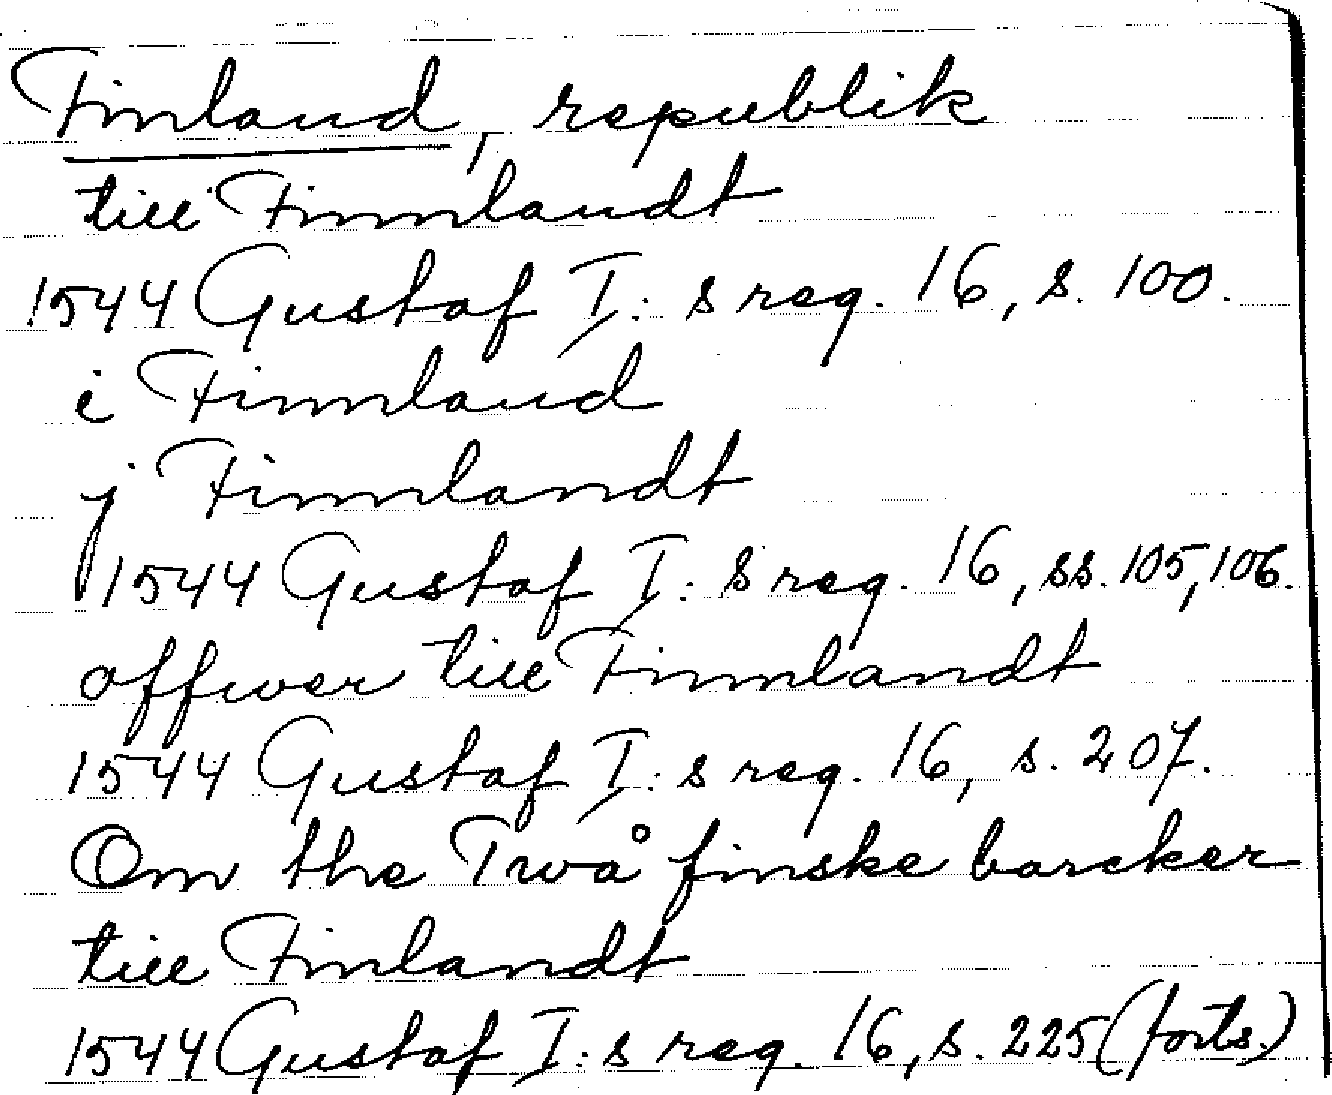 Finland, republik
till Finnlandt
1544 Gustaf I:s reg. 16, s. 100.
i Finnland
j Finnlandt
1544 Gustaf I:s reg. 16, ss. 105, 106.
offwer till Finnlandt
1544 Gustaf I:s reg. 16, s. 207.
Om the Twå finske barcker
till Finlandt
1544 Gustaf I:s reg. 16, s. 225 (forts.)